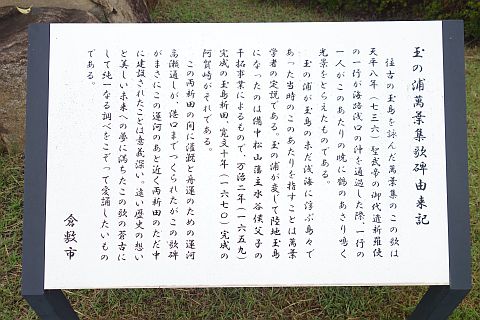 玉の浦萬葉集歌碑由来記
往古の玉島を詠んだ萬葉集のこの歌は
天平八年(七三六)聖武帝の御代遣新羅使
の一行が海路浅口の沖を通過した際一行の
一人がこのあたりの暁に鶴のあさり鳴く
光景をとらえたものである。
玉の浦が玉島の未だ浅海に浮ぶ島々で
あった当時のこのあたりを指すことは萬葉
学者の定説である。玉の浦が変じて陸地玉島
になったのは備中松山藩主水谷侯父子の
干拓事業によるもので、万治二年(一六五九)
完成の玉島新田、寛文十年(一六七〇)完成の
阿賀崎がそれである。
この両新田の間に灌漑と舟運のための運河
高瀬通しが、港口までつくられたがこの歌碑
がまさにこの運河のあと近く両新田のただ中
に建設されたことは意義深い。遠い歴史の想い
と美しい未来への夢に満ちたこの歌の蒼古に
して純なる調べをこぞって愛誦したいもの
である。
倉敷市